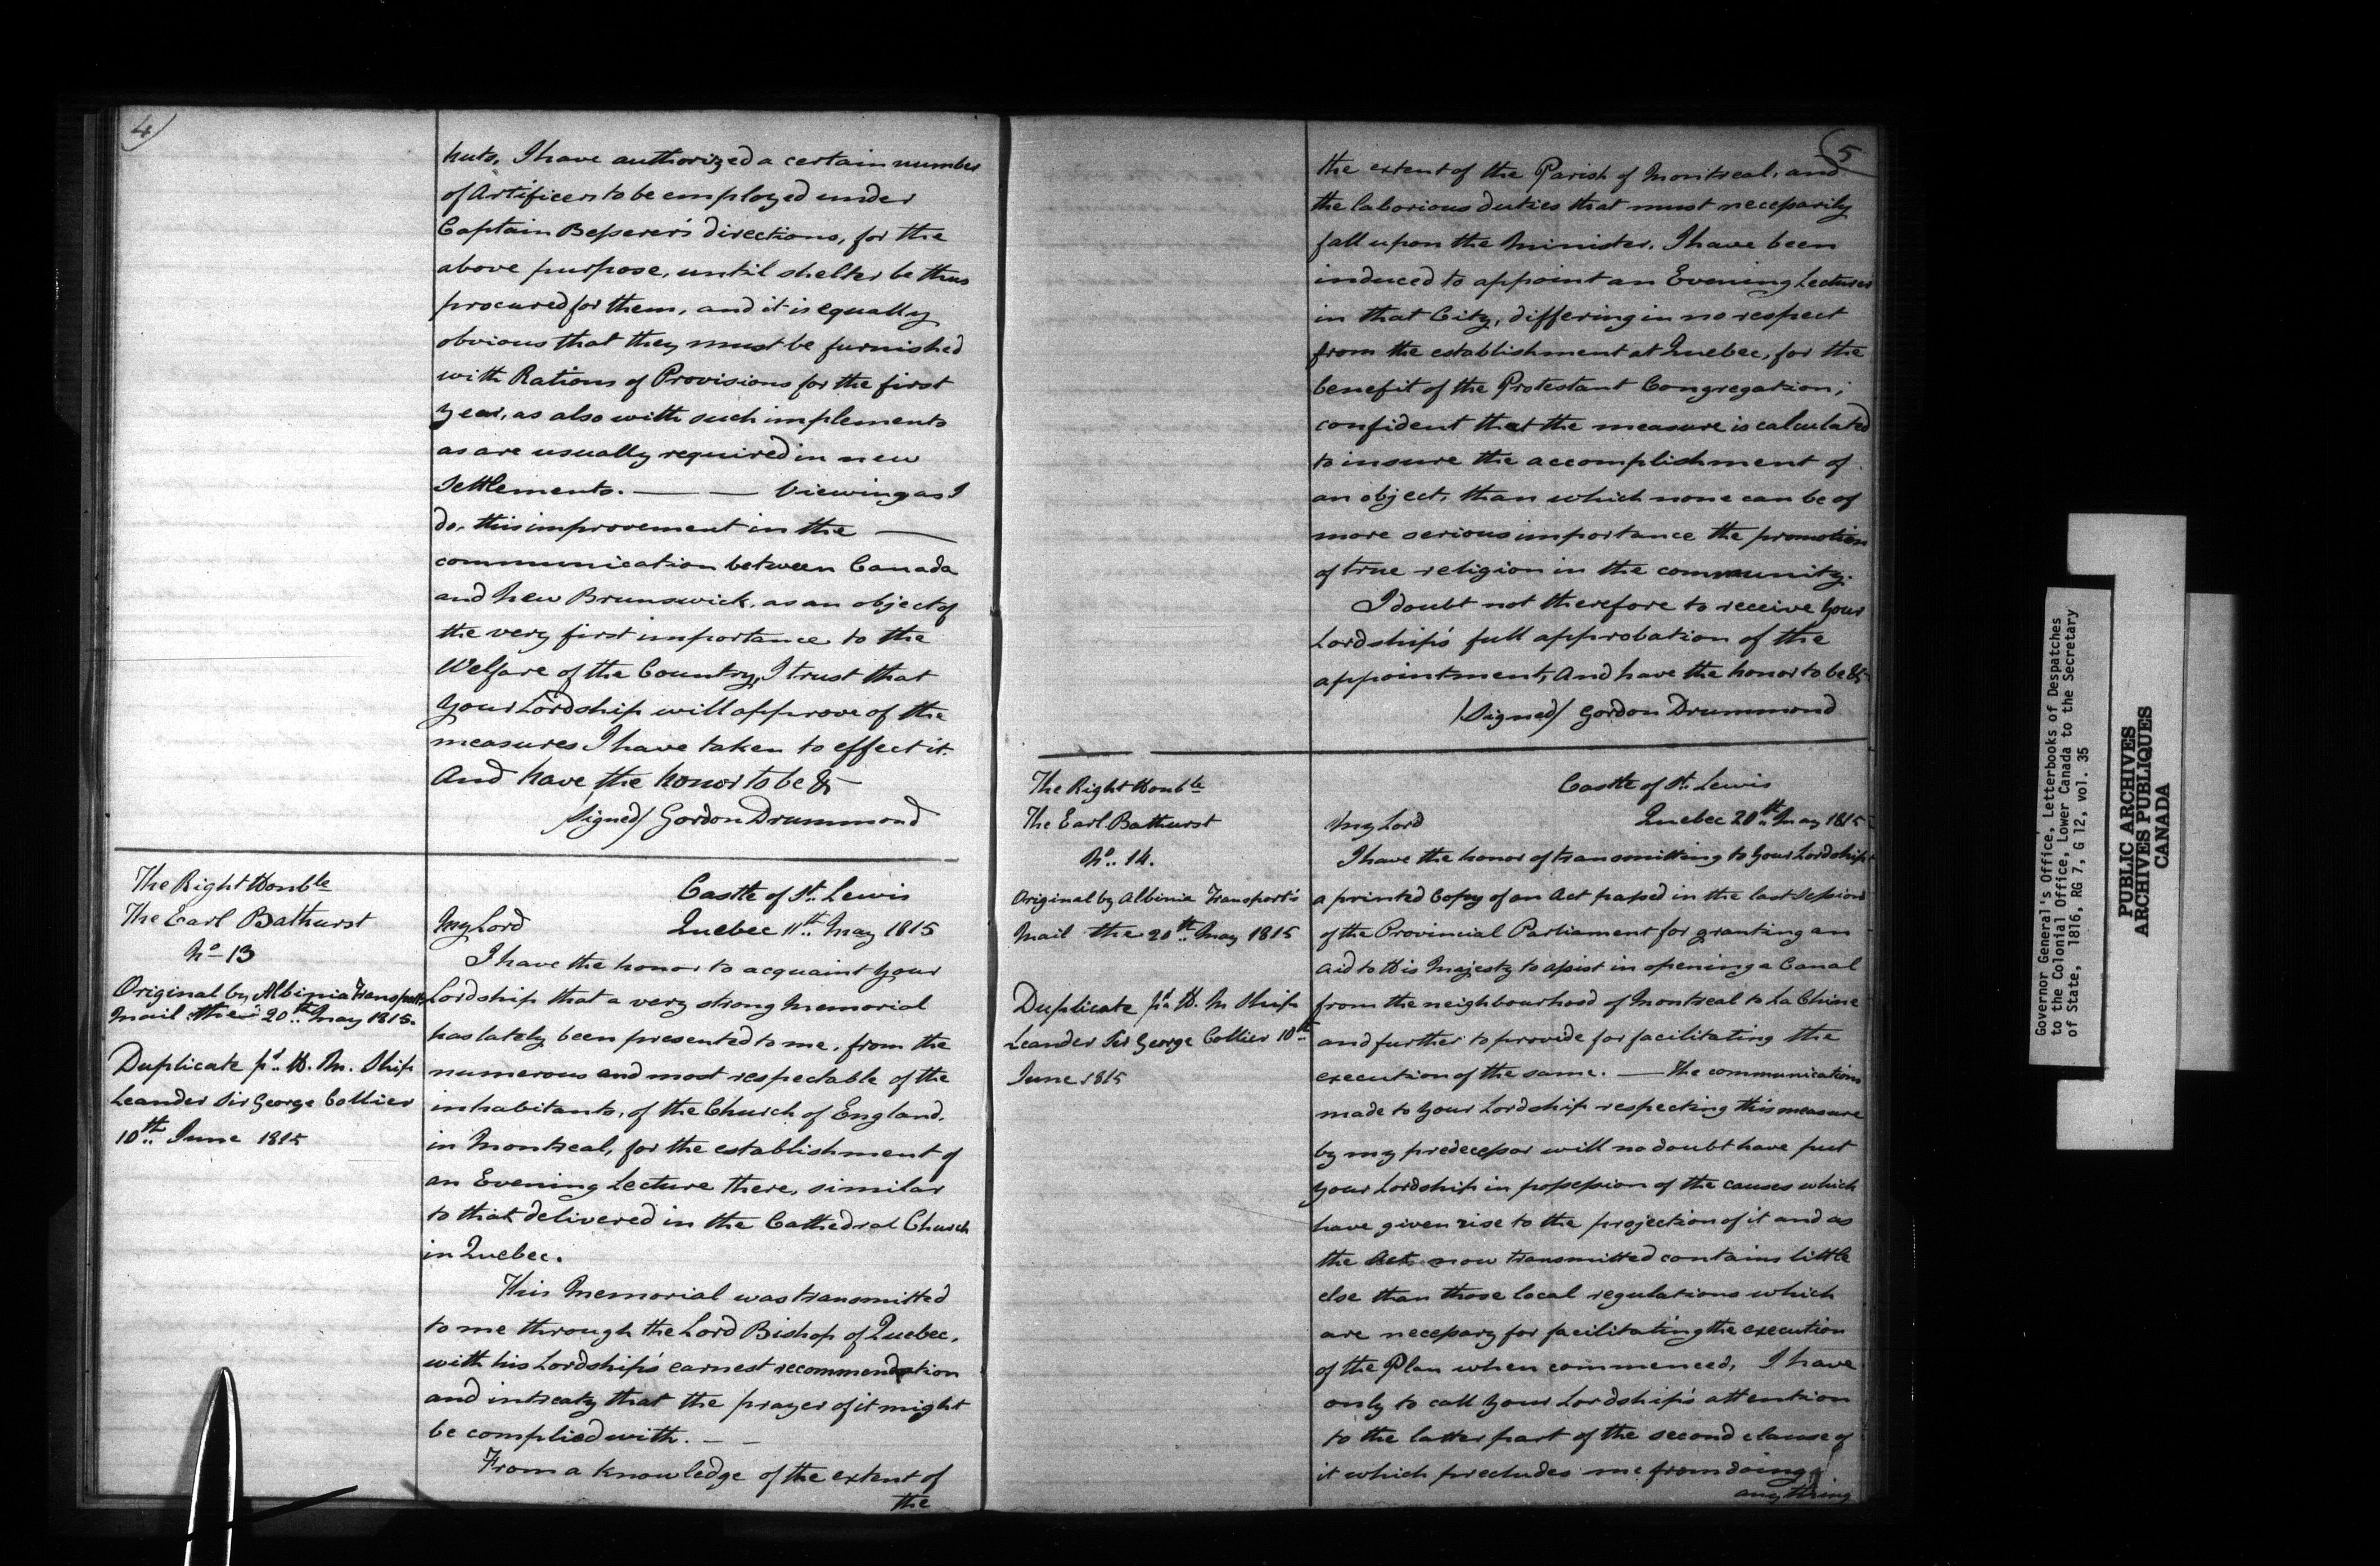 4)
huts, I have authorized a certain number
of Artificers to be employed under
Captain Besserer's directions, for the
above purpose, until shelter be thus
procured for them, and it is equally
obvious that they must be furnished
with Rations of Provisions for the first
year, as also with such implements
as are usually required in new
Settlements. — — Viewing as I
do, this improvement in the —
communication between Canada
and New Brunswick, as an object of
the very first importance to the
Welfare of the Country, I trust that
Your Lordship will approve of the
measures I have taken to effect it.
And have the honor to be &
/Signed/ Gordon Drummond
The Right Honble
The Earl Bathurst
No 13
Original by Albinia Transports
Mail the 20th May 1815.
Duplicate pr. H. M. Ship
Leander Sir George Collier
10th June 1815
Castle of St. Lewis
My Lord Quebec 11th May 1815
I have the honor to acquaint Your
Lordship that a very strong Memorial
has lately been presented to me, from the
numerous and most respectable of the
inhabitants, of the Church of England.
in Montreal, for the establishment of
an Evening Lecture there, similar
to that delivered in the Cathedral Church
in Quebec.
This Memorial was transmitted
to me through the Lord Bishop of Quebec,
with his Lordship's earnest recommendation
and intreaty that the prayer of it might
be complied with. — —
From a knowledge of the extent of
the
(5
the extent of the Parish of Montreal, and
the laborious duties that must necessarily
fall upon the Minister, I have been
induced to appoint an Evening Lecturer
in that City, differing in no respect
from the establishment at Quebec, for the
benefit of the Protestant Congregation;
confident that the measure is calculated
to insure the accomplishment of
an object, than which none can be of
more serious importance the promotion
of true religion in the community.
I doubt not therefore to receive Your
Lordship's full approbation of the
appointment, And have the honor to be &c
/Signed/ Gordon Drummond
The Right Honble
The Earl Bathurst
No. 14.
Original by Albinia Transport's
Mail the 20th May 1815
Duplicate pr H. M Ship
Leander Sir George Collier 10th
June 1815
Castle of St. Lewis
My Lord Quebec 20th May 1815
I have the honor of transmitting to Your Lordship
a printed Copy of an Act passed in the last Session
of the Provincial Parliament for granting an
aid to His Majesty to assist in opening a Canal
from the neighbourhood of Montreal to La Chine
and further to provide for facilitating the
execution of the same. — The communications
made to Your Lordship respecting this measure
by my predecessor will no doubt have put
Your Lordship in possession of the causes which
have given rise to the projection of it and as
the Act now transmitted contains little
else than those local regulations which
are necessary for facilitating the execution
of the Plan when commenced, I have
only to call Your Lordship's attention
to the latter part of the second clause of
it which precludes me from doing
anything
Governor General's Office, Letterbooks of Despatches
to the Colonial Office, Lower Canada to the Secretary
of State, 1816, RG 7, G 12, vol. 35
PUBLIC ARCHIVES
ARCHIVES PUBLIQUES
CANADA